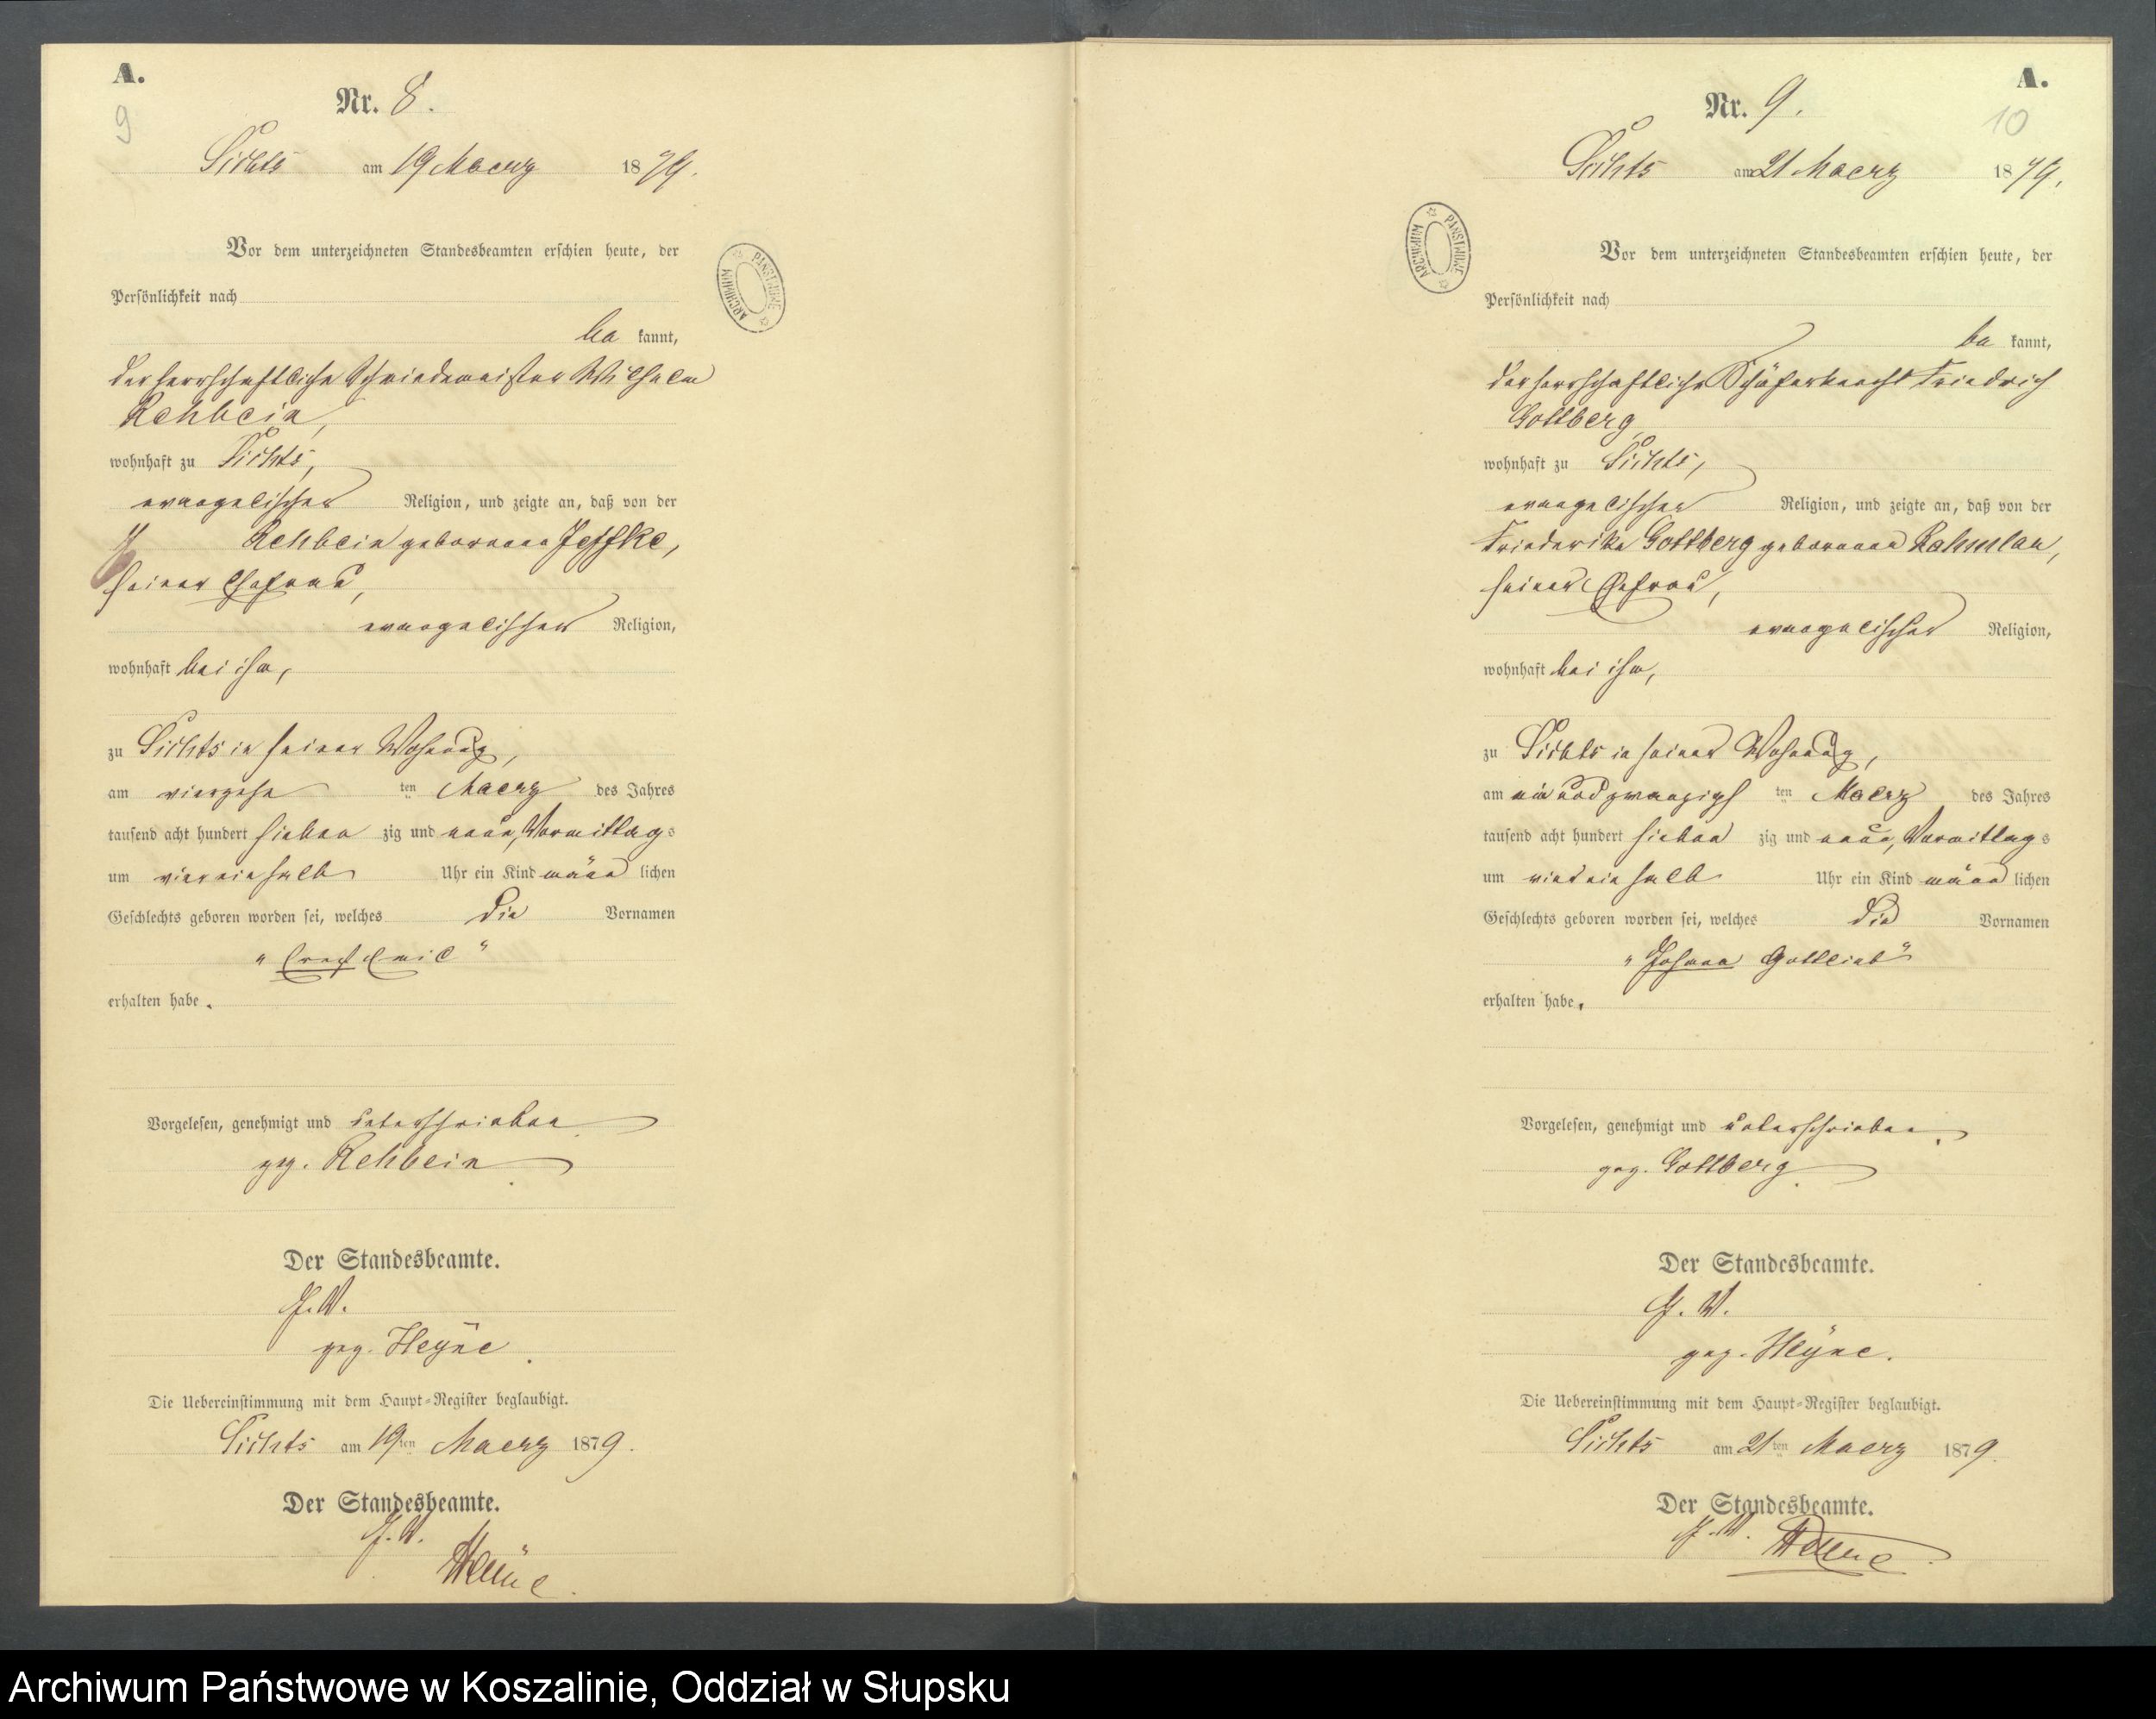 A.
9
Nr. 8.
Sichts am 19 Maerz 1879.
Vor dem unterzeichneten Standesbeamten erschien heute, der
Persönlichkeit nach
be kannt,
der herrschaftliche Schmiedemeister Wilhelm
Rehbein,
wohnhaft zu Sichts,
evangelischer Religion, und zeigte an, daß von der
Rehbein geborenen Jeffke,
seiner Ehefrau,
evangelischer Religion,
wohnhaft bei ihm,
zu Sichts in seiner Wohnung,
am vierzehn ten Maerz des Jahres
tausend acht hundert sieben zig und neun, Vormittags
um vier ein halb Uhr ein Kind männ lichen
Geschlechts geboren worden sei, welches die Vornamen
„Ernst Emil“
erhalten habe.
Vorgelesen, genehmigt und unterschrieben
gez. Rehbein
Der Standesbeamte.
J. V.
gez. Heÿne.
Die Uebereinstimmung mit dem Haupt-Register beglaubigt.
Sichts am 19ten Maerz 1879.
Der Standesbeamte.
J. V.
Heÿne.
ARCHIWUM PAŃSTWOWE
A.
10
Nr. 9.
Sichts am 21 Maerz 1879.
Vor dem unterzeichneten Standesbeamten erschien heute, der
Persönlichkeit nach
be kannt,
der herrschaftliche Schäferknecht Friedrich
Gottberg,
wohnhaft zu Sichts,
evangelischer Religion, und zeigte an, daß von der
Friederike Gottberg geborenen
seiner Ehefrau,
evangelischer Religion,
wohnhaft bei ihm,
zu Sichts in seiner Wohnung,
am ein und zwanzigs ten Maerz des Jahres
tausend acht hundert sieben zig und neun, Vormittags
um vier ein halb Uhr ein Kind männ lichen
Geschlechts geboren worden sei, welches die Vornamen
„Johann Gottlieb“
erhalten habe.
Vorgelesen, genehmigt und unterschrieben.
gez. Gottberg
Der Standesbeamte.
J. V.
gez. Heÿne.
Die Uebereinstimmung mit dem Haupt-Register beglaubigt.
Sichts am 21ten Maerz 1879.
Der Standesbeamte.
J. V. Heyne.
ARCHIWUM PAŃSTWOWE
Archiwum Państwowe w Koszalinie, Oddział w Słupsku